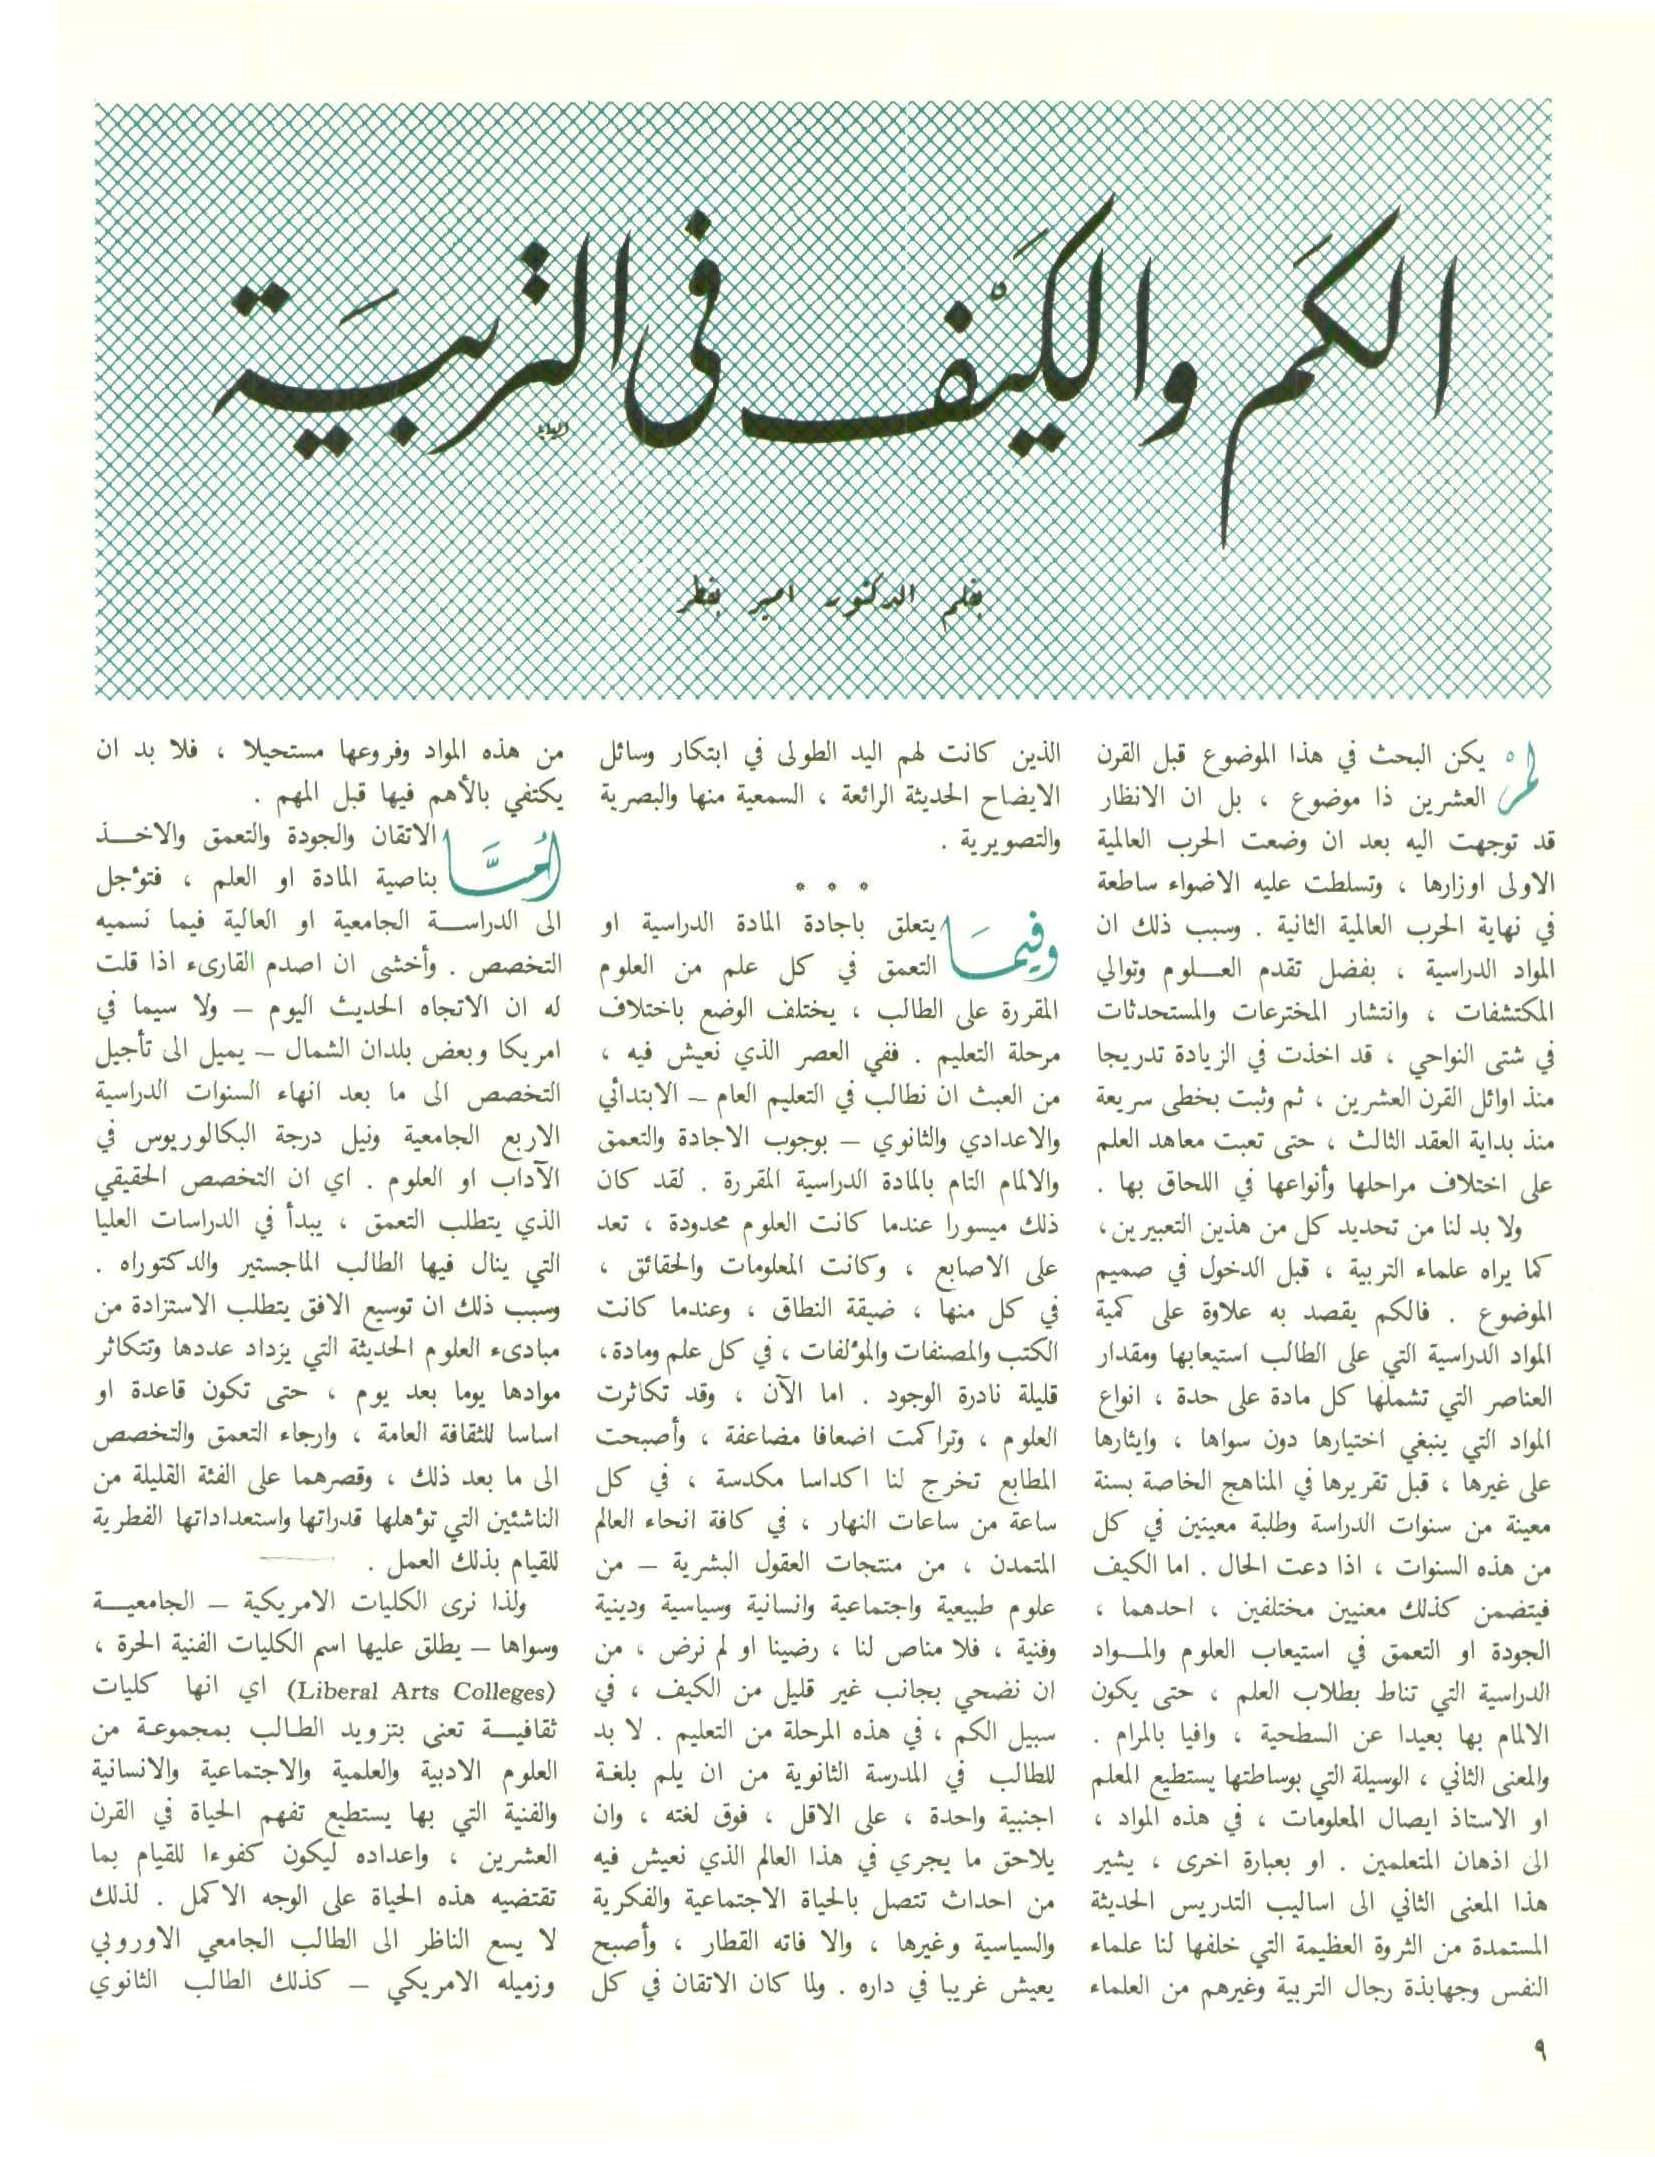 الكم والكيف في التربية
بقلم الدكتور امير بقطر
لم يكن البحث في هذا الموضوع قبل القرن
العشرين ذا موضوع ، بل ان الانظار
قد توجهت اليه بعد ان وضعت الحرب العالمية
الاولى اوزارها ، وتسلطت عليه الاضواء ساطعة
في نهاية الحرب العالمية الثانية . وسبب ذلك ان
المواد الدراسية ، بفضل تقدم العلوم وتوالي
المكتشفات ، وانتشار المخترعات والمستحدثات
في شتى النواحي ، قد اخذت في الزيادة تدريجا
منذ اوائل القرن العشرين ، ثم وثبت بخطى سريعة
منذ بداية العقد الثالث ، حتى تعبت معاهد العلم
على اختلاف مراحلها وأنواعها في اللحاق بها .
ولا بد لنا من تحديد كل من هذين التعبيرين،
كما يراه علماء التربية ، قبل الدخول في صميم
الموضوع . فالكم يقصد به علاوة على كمية
المواد الدراسية التي على الطالب استيعابها ومقدار
العناصر التي تشملها كل مادة على حدة ، انواع
المواد التي ينبغي اختيارها دون سواها ، وايثارها
على غيرها ، قبل تقريرها في المناهج الخاصة بسنة
معينة من سنوات الدراسة وطلبة معينين في كل
من هذه السنوات ، اذا دعت الحال . اما الكيف
فيتضمن كذلك معنيين مختلفين ، احدهما ،
الجودة او التعمق في استيعاب العلوم والمواد
الدراسية التي تناط بطلاب العلم ، حتى يكون
الالمام بها بعيدا عن السطحية ، وافيا بالمرام .
والمعنى الثاني ، الوسيلة التي بوساطتها يستطيع المعلم
او الاستاذ ايصال المعلومات ، في هذه المواد ،
الى اذهان المتعلمين . او بعبارة اخرى ، يشير
هذا المعنى الثاني الى اساليب التدريس الحديثة
المستمدة من الثروة العظيمة التي خلفها لنا علماء
النفس وجهابذة رجال التربية وغيرهم من العلماء
الذين كانت لهم اليد الطولى في ابتكار وسائل
الايضاح الحديثة الرائعة ، السمعية منها والبصرية
والتصويرية .
* * *
وفيما يتعلق باجادة المادة الدراسية او
التعمق في كل علم من العلوم
المقررة على الطالب ، يختلف الوضع باختلاف
مرحلة التعليم . ففي العصر الذي نعيش فيه ،
من العبث ان نطالب في التعليم العام – الابتدائي
والاعدادي والثانوي – بوجوب الاجادة والتعمق
والالمام التام بالمادة الدراسية المقررة . لقد كان
ذلك ميسورا عندما كانت العلوم محدودة ، تعد
على الاصابع ، وكانت المعلومات والحقائق ،
في كل منها ، ضيقة النطاق ، وعندما كانت
الكتب والمصنفات والمؤلفات ، في كل علم ومادة،
قليلة نادرة الوجود . اما الآن ، وقد تكاثرت
العلوم ، وتراكمت اضعافا مضاعفة ، وأصبحت
المطابع تخرج لنا اكداسا مكدسة ، في كل
ساعة من ساعات النهار ، في كافة انحاء العالم
المتمدن ، من منتجات العقول البشرية – من
علوم طبيعية واجتماعية وانسانية وسياسية ودينية
وفنية ، فلا مناص لنا ، رضينا او لم نرض ، من
ان نضحي بجانب غير قليل من الكيف ، في
سبيل الكم ، في هذه المرحلة من التعليم . لا بد
للطالب في المدرسة الثانوية من ان يلم بلغة
اجنبية واحدة ، على الاقل ، فوق لغته ، وان
يلاحق ما يجري في هذا العالم الذي نعيش فيه
من احداث تتصل بالحياة الاجتماعية والفكرية
والسياسية وغيرها ، والا فاته القطار ، وأصبح
يعيش غريبا في داره . ولما كان الاتقان في كل
من هذه المواد وفروعها مستحيلا ، فلا بد ان
يكتفي بالأهم فيها قبل المهم .
أمـا الاتقان والجودة والتعمق والاخذ
بناصية المادة او العلم ، فتؤجل
الى الدراسة الجامعية او العالية فيما نسميه
التخصص . وأخشى ان اصدم القارىء اذا قلت
له ان الاتجاه الحديث اليوم – ولا سيما في
امريكا وبعض بلدان الشمال – يميل الى تأجيل
التخصص الى ما بعد انهاء السنوات الدراسية
الاربع الجامعية ونيل درجة البكالوريوس في
الآداب او العلوم . اي ان التخصص الحقيقي
الذي يتطلب التعمق ، يبدأ في الدراسات العليا
التي ينال فيها الطالب الماجستير والدكتوراه .
وسبب ذلك ان توسيع الافق يتطلب الاستزادة من
مبادىء العلوم الحديثة التي يزداد عددها وتتكاثر
موادها يوما بعد يوم ، حتى تكون قاعدة او
اساسا للثقافة العامة ، وارجاء التعمق والتخصص
الى ما بعد ذلك ، وقصرهما على الفئة القليلة من
الناشئين التي تؤهلها قدراتها واستعداداتها الفطرية
للقيام بذلك العمل .
ولذا نرى الكليات الامريكية – الجامعية
وسواها – يطلق عليها اسم الكليات الفنية الحرة ،
(Liberal Arts Colleges) اي انها كليات
ثقافية تعنى بتزويد الطالب بمجموعة من
العلوم الادبية والعلمية والاجتماعية والانسانية
والفنية التي بها يستطيع تفهم الحياة في القرن
العشرين ، واعداده ليكون كفوءا للقيام بما
تقتضيه هذه الحياة على الوجه الاكمل . لذلك
لا يسع الناظر الى الطالب الجامعي الاوروبي
وزميله الامريكي – كذلك الطالب الثانوي
٩